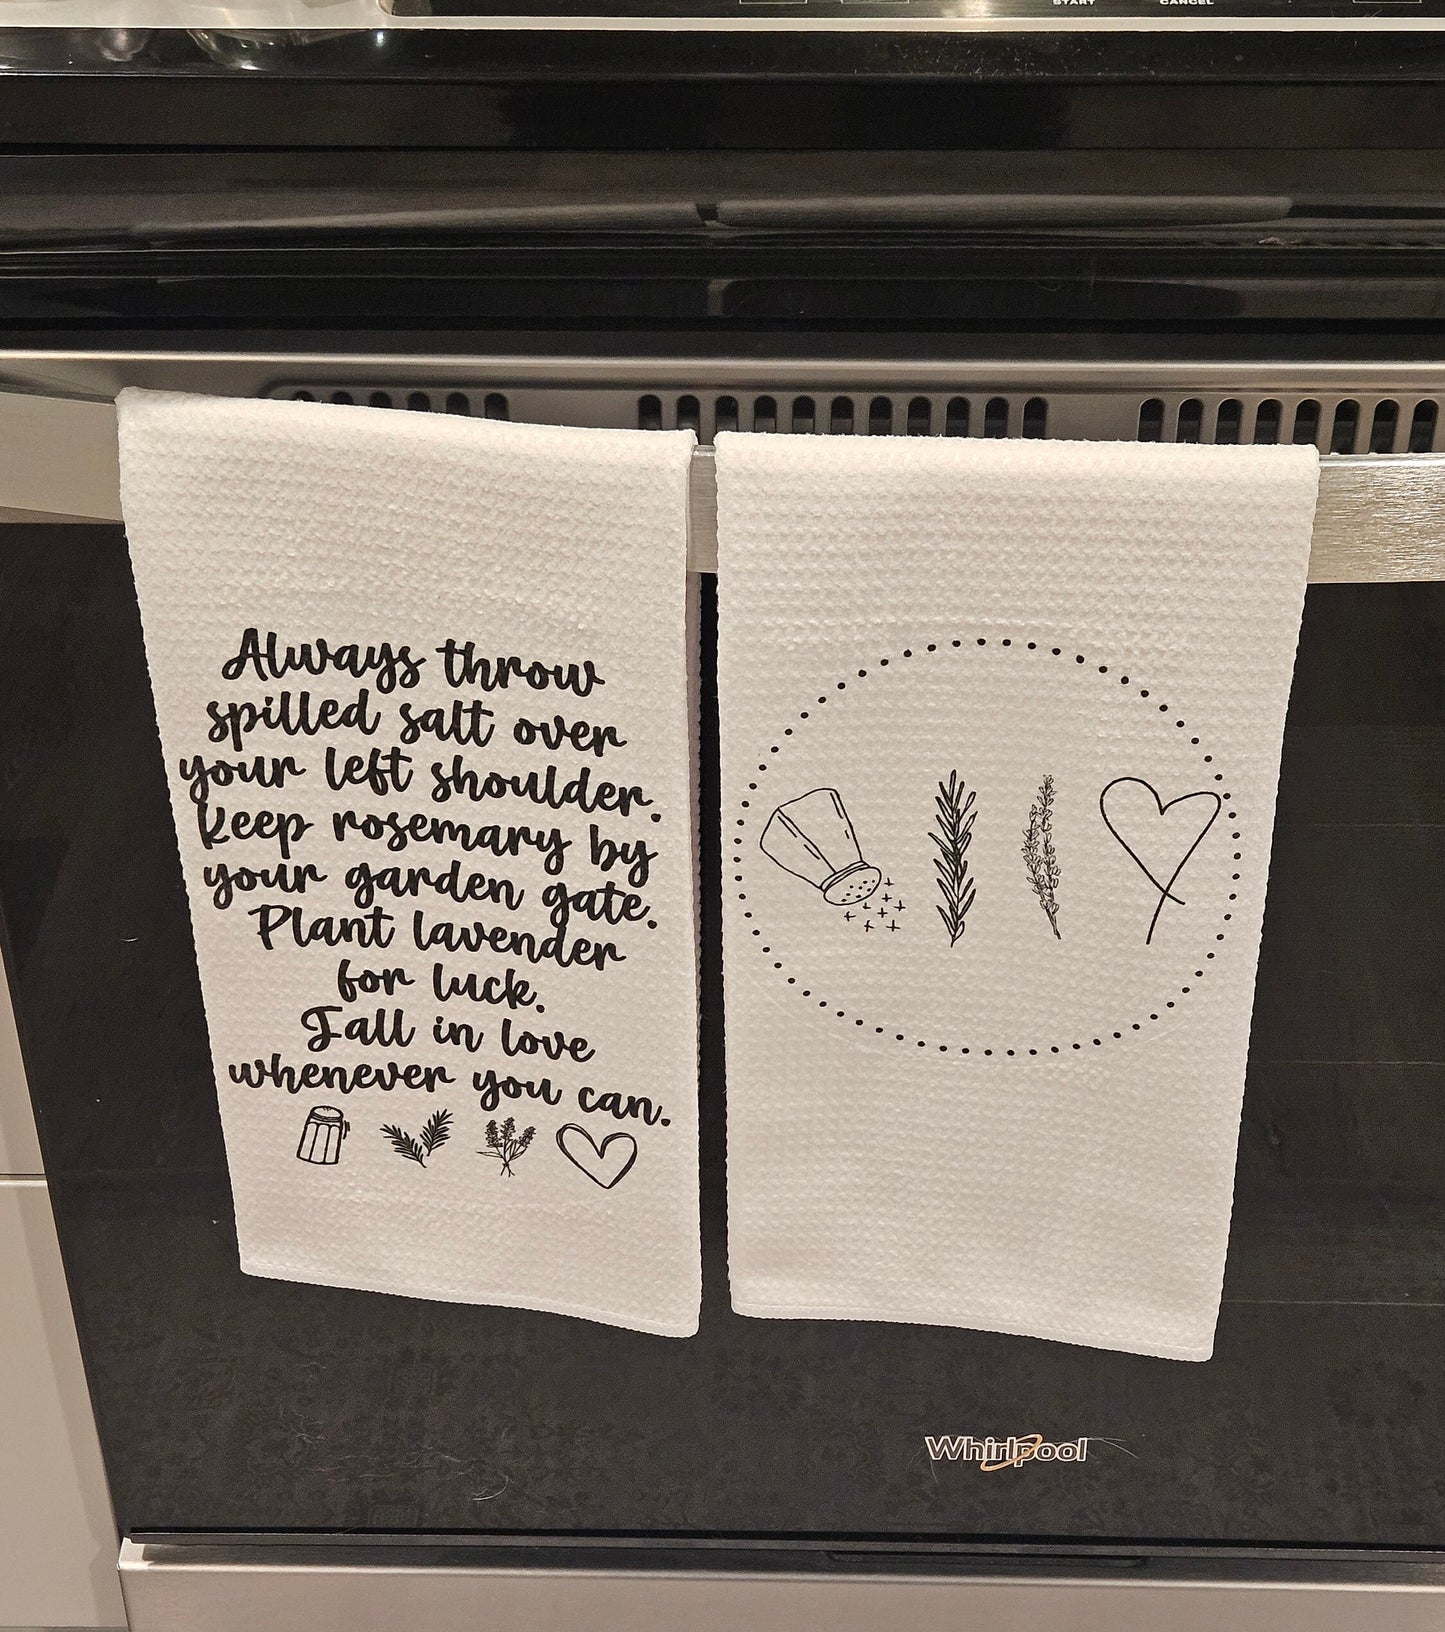 START CANCEL
Always throw
spilled salt over
your left shoulder.
keep rosemary by
your garden gate.
Plant lavender
for luck.
Fall in love
whenever you can.
Whirlpool